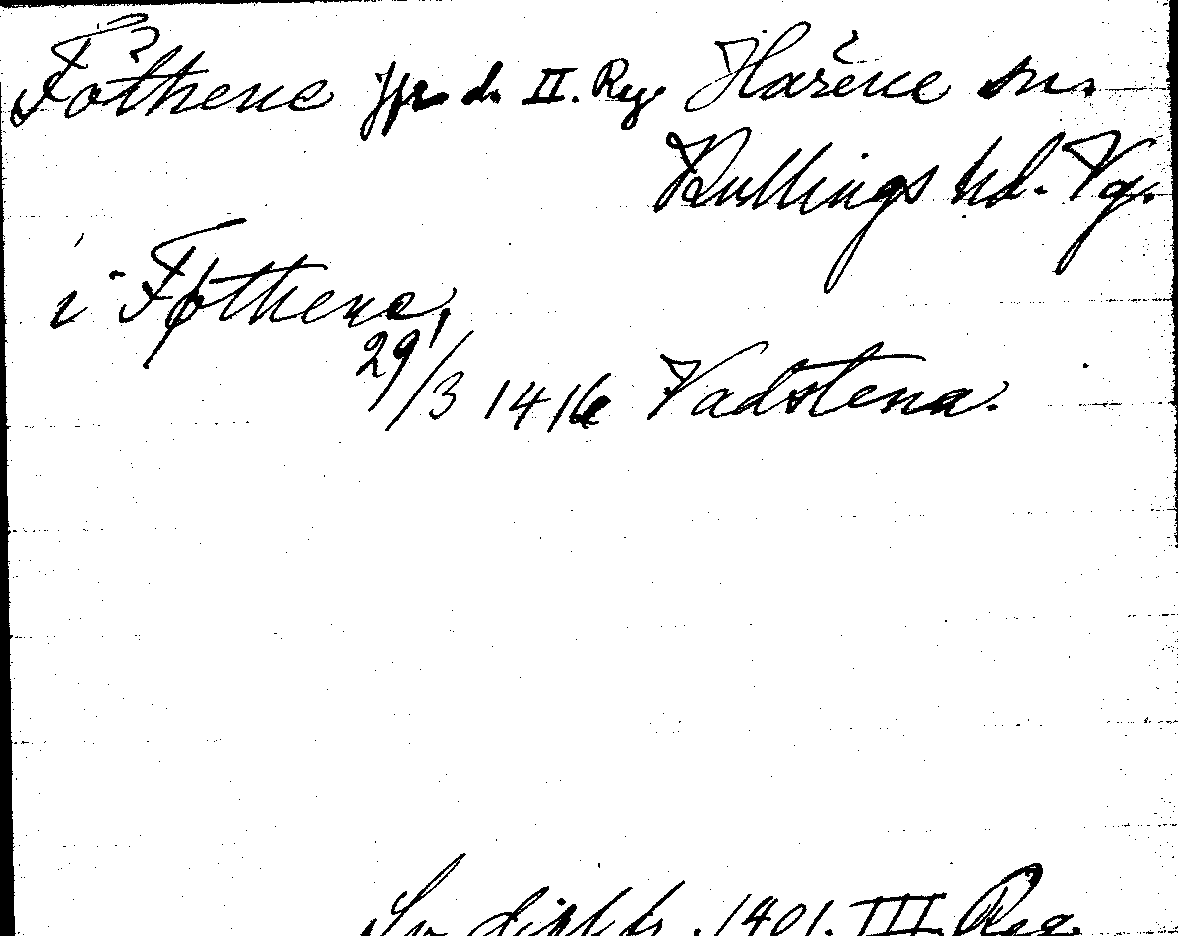 Föthene jfr d. II. Reg. Hařene sn.
Kullings hd. Vg.
i Føthene,
29/3 1416 Vadstena.
Sv. dipl. fr. 1401. III. Reg.